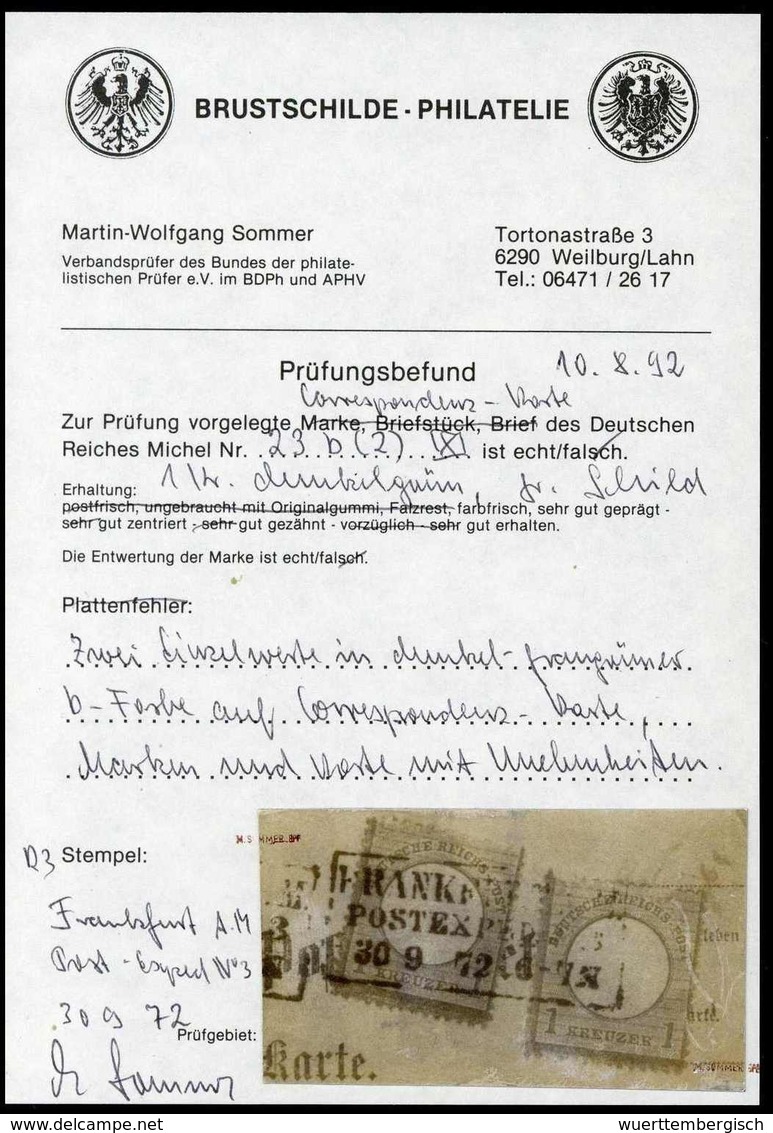 BRUSTSCHILDE - PHILATELIE
Martin-Wolfgang Sommer
Verbandsprüfer des Bundes der philate-
listischen Prüfer e.V. im BDPh und APHV
Tortonastraße 3
6290 Weilburg/Lahn
Tel.: 06471 / 26 17
Prüfungsbefund 10.8.92
Correspondenz-Karte
Zur Prüfung vorgelegte Marke, Briefstück, Brief des Deutschen
Reiches Michel Nr. 23 b (2) ist echt/falsch.
1 Kr. dunkelgrün, gr. Schild
Erhaltung:
postfrisch, ungebraucht mit Originalgummi, Falzrest, farbfrisch, sehr gut geprägt -
sehr gut zentriert - sehr gut gezähnt - vorzüglich - sehr gut erhalten.
Die Entwertung der Marke ist echt/falsch.
Plattenfehler:
Zwei Einzelwerte in dunkel-graugrüner
b-Farbe auf Correspondenz-Karte,
Marken und Karte mit Unebenheiten.
M. SOMMER BPP
R3 Stempel:
Frankfurt A.M
Post-Exped No 3
30 9 72
Prüfgebiet:
Sommer
FRANKF
POSTEXP
30 9 72 6-7N
DEUTSCHE REICHS-POST
KREUZER
DEUTSCHE REICHS-POST
1 KREUZER 1
leben
Karte.
M. SOMMER BPP
delcampe.net
wuerttembergisch